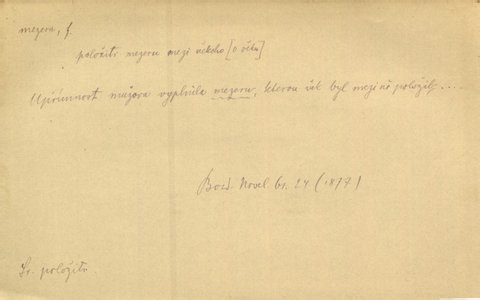 mezera, f.
položiti mezeru mezi někoho [o věku]
Upřímnost mužova vyplnila mezeru, kterou věk byl mezi ně položil, ...
Bozd. Novel. Br. 24. (1877)
Sr. položiti